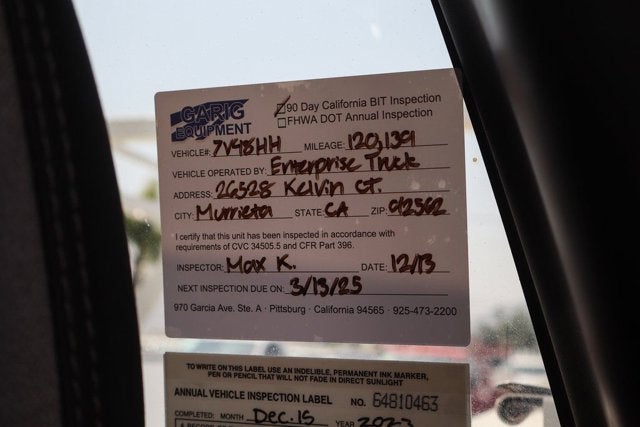 GARIG
EQUIPMENT
90 Day California BIT Inspection
FHWA DOT Annual Inspection
VEHICLE#: 7V48HH MILEAGE: 120,139
VEHICLE OPERATED BY: Enterprise Truck
ADDRESS: 26528 Kelvin ct.
CITY: Murrieta STATE: CA ZIP: 92562
I certify that this unit has been inspected in accordance with
requirements of CVC 34505.5 and CFR Part 396.
INSPECTOR: Max K. DATE: 12/13
NEXT INSPECTION DUE ON: 3/13/25
970 Garcia Ave. Ste. A · Pittsburg · California 94565 · 925-473-2200
TO WRITE ON THIS LABEL USE AN INDELIBLE, PERMANENT INK MARKER,
PEN OR PENCIL THAT WILL NOT FADE IN DIRECT SUNLIGHT
ANNUAL VEHICLE INSPECTION LABEL NO. 64810463
COMPLETED: MONTH Dec. 15 YEAR 2023